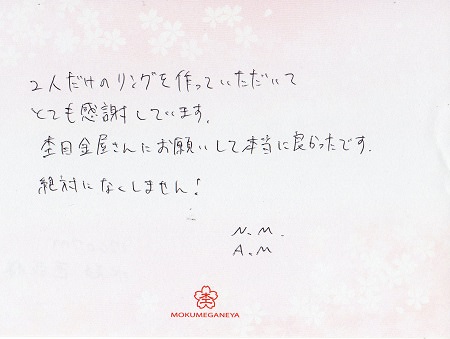 2人だけのリングを作っていただいて
とても感謝しています.
杢目金屋さんにお願いして本当に良かったです.
絶対になくしません!
N.M.
A.M
杢
MOKUMEGANEYA